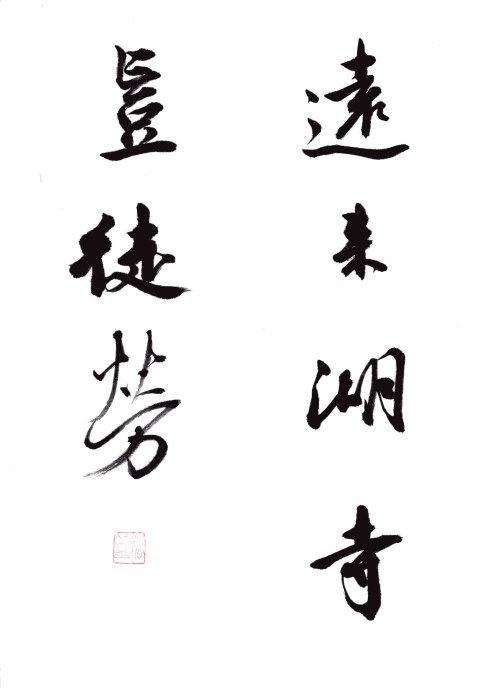 遠来湖寺
豈徒勞